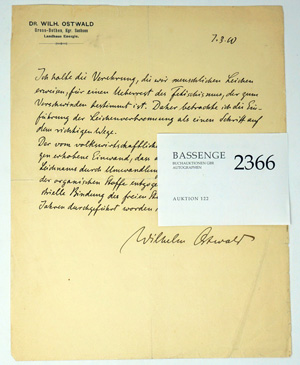 DR. WILH. OSTWALD
Gross-Bothen, Kgr. Sachsen
Landhaus Energie.
Ich halte die Verehrung, die wir menschlichen Leichen
erweisen, für einen Ueberrest des Fetischismus, der zum
Verschwinden bestimmt ist. Daher betrachte ich die Ein-
führung der Leichenverbrennung als einen Schritt auf
dem richtigen Wege.
Der vom volkswirtschaftlichen
gen erhobene Einwand, dass
Leichnams durch Umwandlung
der organischen Stoffe entzogen
strielle Bindung des freien
Jahren durchgeführt worden
Wilhelm Ostwald
BASSENGE
BUCHAUKTIONEN UND
AUTOGRAPHEN
2366
AUKTION 122